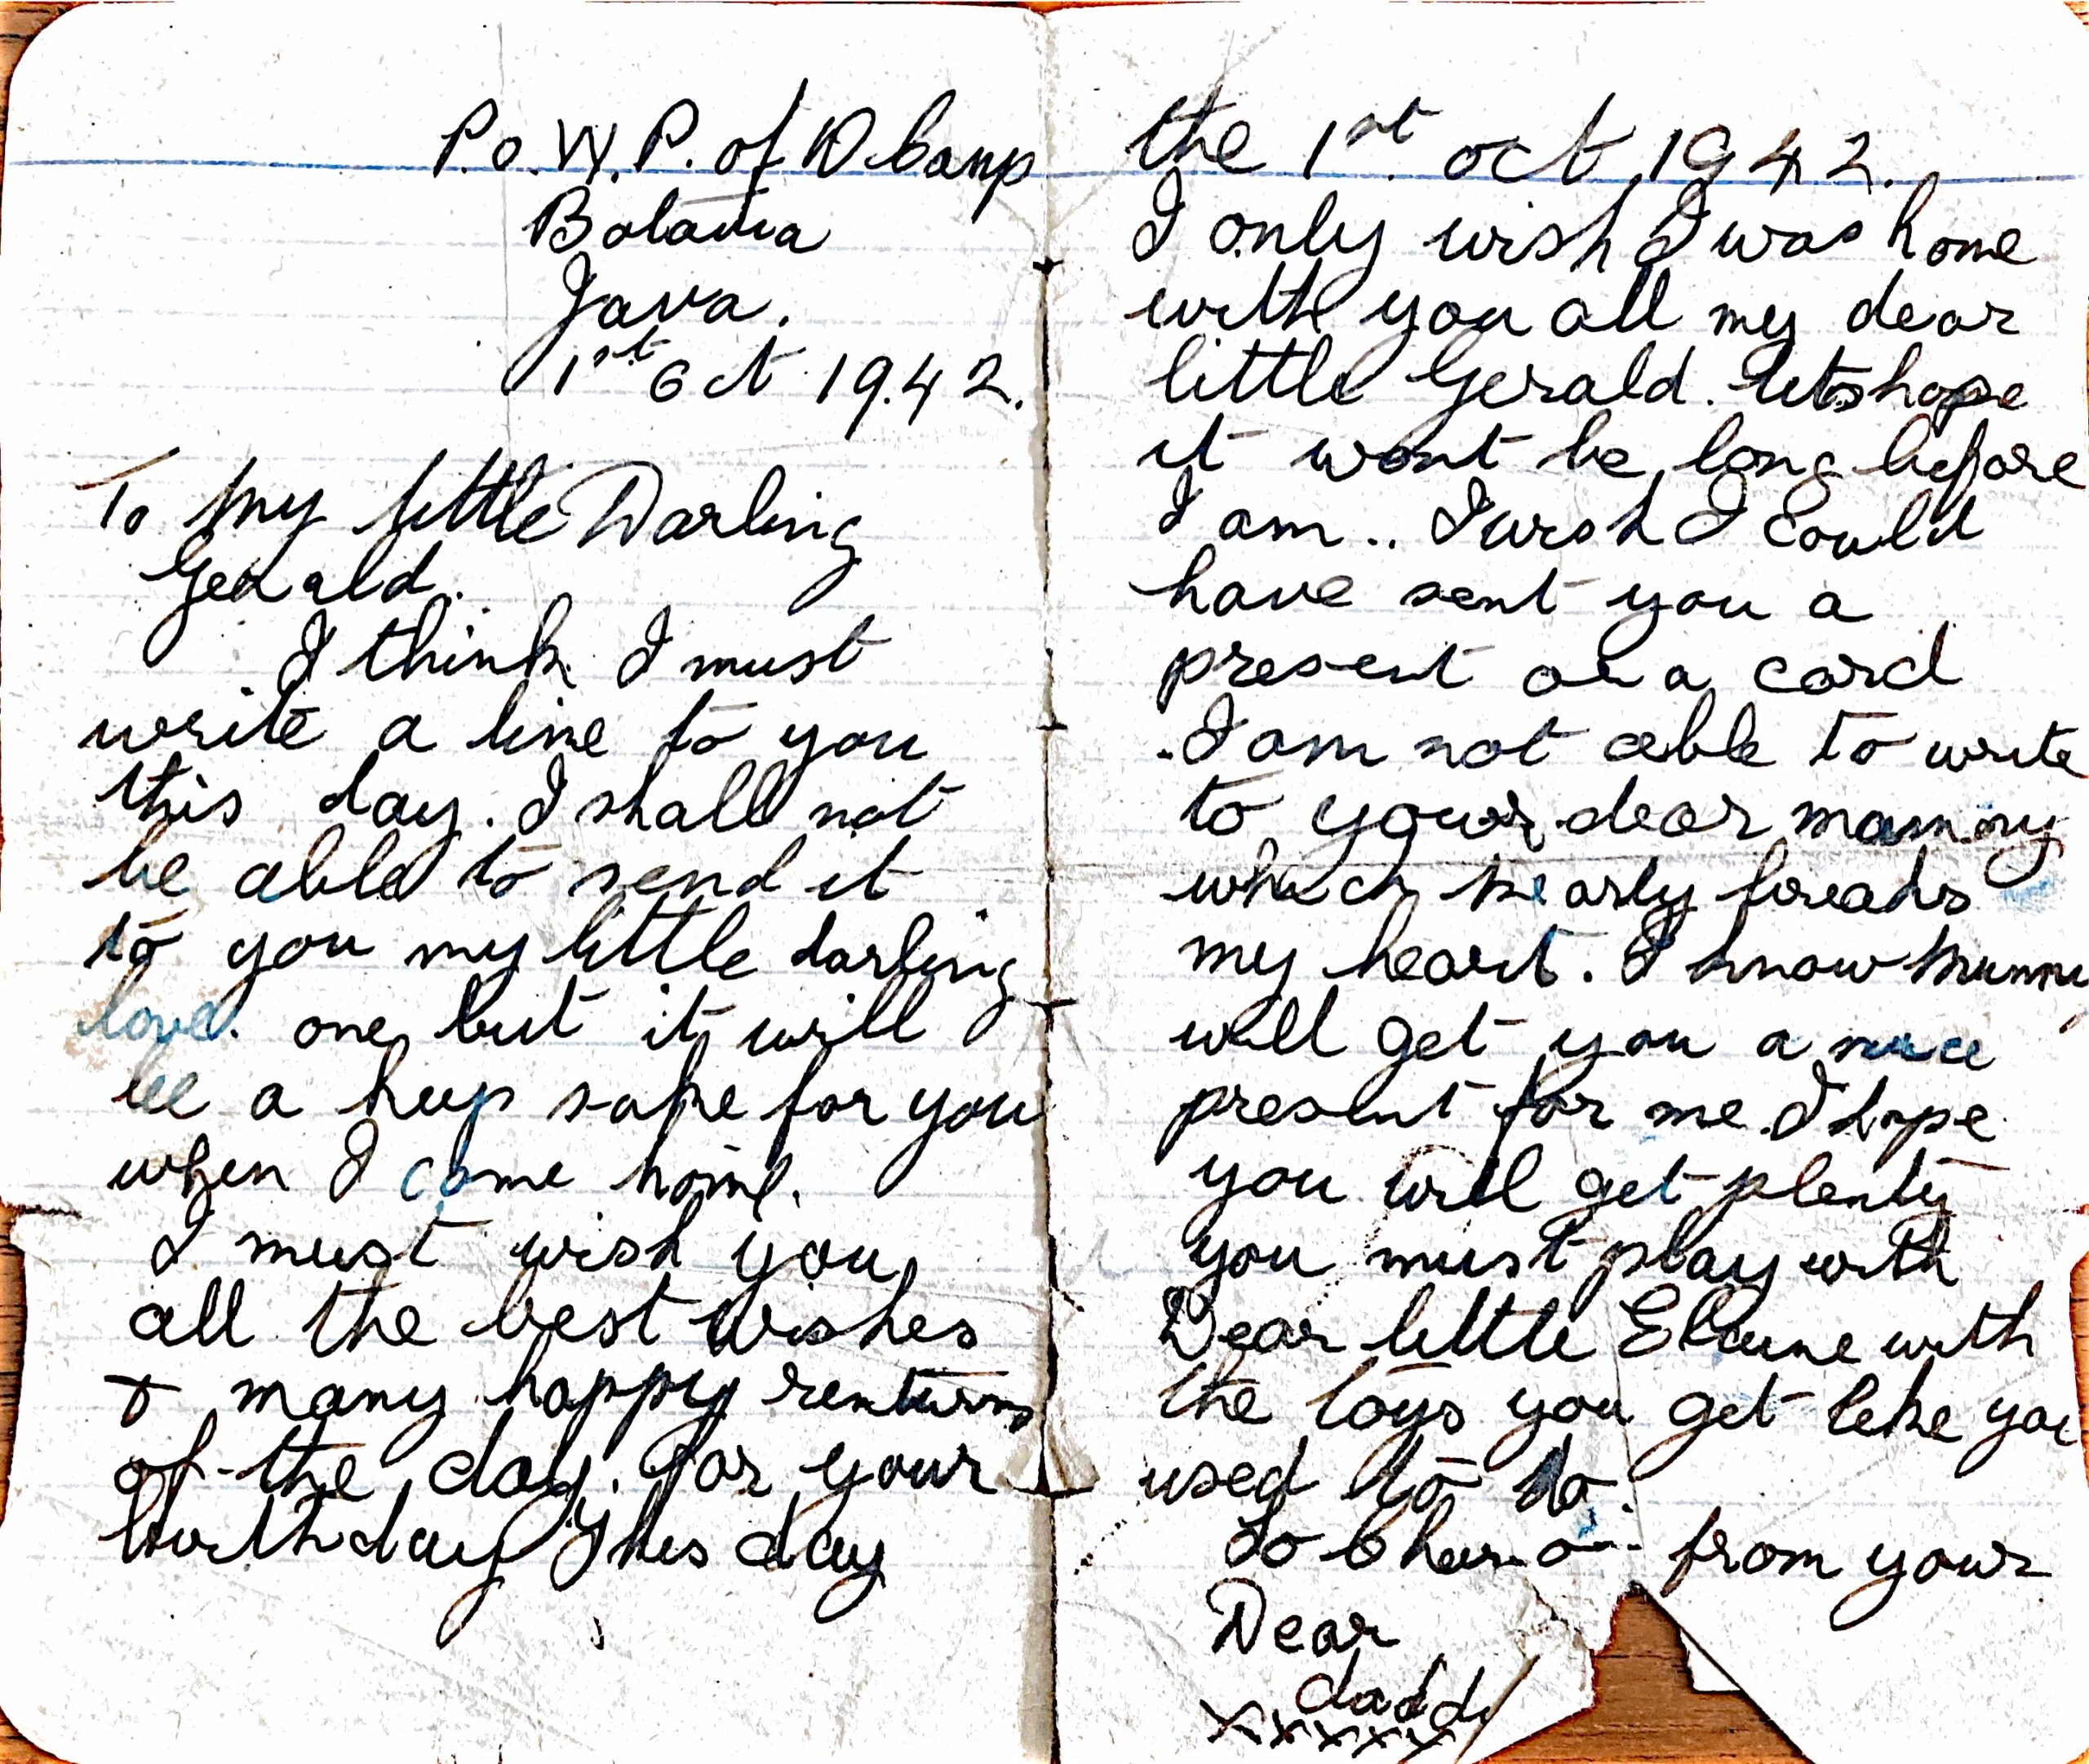 P.O.W. P. of W Camp
Batavia
Java.
1st Oct 1942.
To My little Darling
Gerald.
I think I must
write a line to you
this day. I shall not
be able to send it
to you my little darling
love. one but it will
be a keep sake for you
when I come home.
I must wish you
all the best wishes
& many happy renturns
of the day. for your
birthday this day
the 1st oct 1942.
I only wish I was home
with you all my dear
little Gerald. lets hope
it wont be long before
I am.. I wish I could
have sent you a
present or a card
. I am not able to write
to your dear mammy
which nearly breaks
my heart. I know Mummy
will get you a nice
present for me. I hope
you will get plenty
you must play with
Dear little Elaine with
the toys you get like you
used to do.
So Cheerio from your
Dear
daddy
xxxxxx